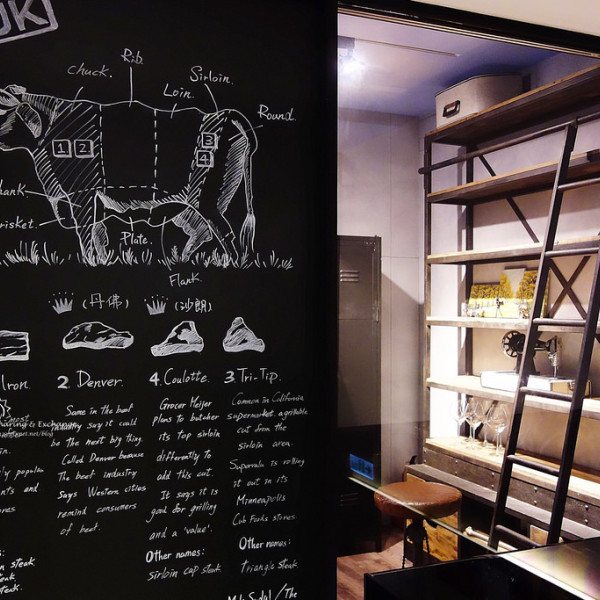 UK
chuck.
Rib.
Loin.
Sirloin.
Round.
1 2
3
4
hank
risket.
Plate.
Flank.
(丹佛)
(沙朗)
Iron.
2. Denver.
Some in the beef
industry say it could
be the next big thing.
Called Denver because
the beef industry
says Western cities
remind consumers
of beef.
4. Coulotte.
Grocer Meijer
plans to butcher
its top sirloin
differently to
add this cut.
It says it is
good for grilling
and a 'value'.
Other names:
sirloin cap steak
3. Tri-Tip.
Common in California
supermarket, a gribable
cut from the
sirloin area.
Supervalu is rolling
it out in its
Minneapolis
Cub Foods stores.
Other names:
triangle steak
most
ly popular
nts and
ores
steak
steak.
The